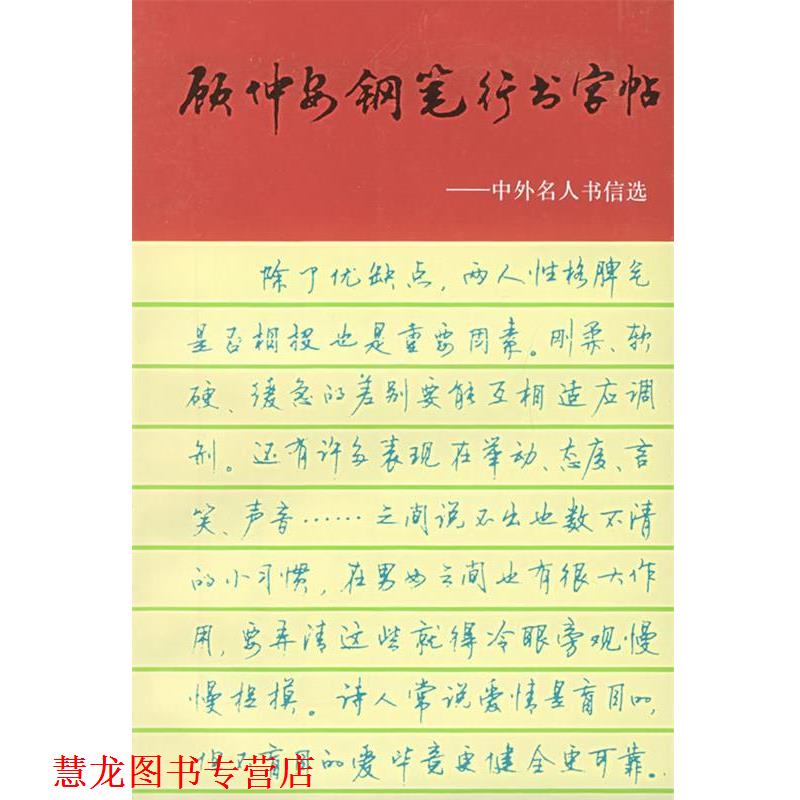 顾仲安钢笔行书字帖
——中外名人书信选
除了优缺点，两人性格脾气
是否相投也是重要因素。刚柔、软
硬、缓急的差别要能互相适应调
剂。还有许多表现在举动、态度、言
笑、声音……之间说不出也数不清
的小习惯，在男女之间也有很大作
用，要弄清这些就得冷眼旁观慢
慢捉摸。诗人常说爱情是盲目的，
但不盲目的爱毕竟更健全更可靠。
慧龙图书专营店